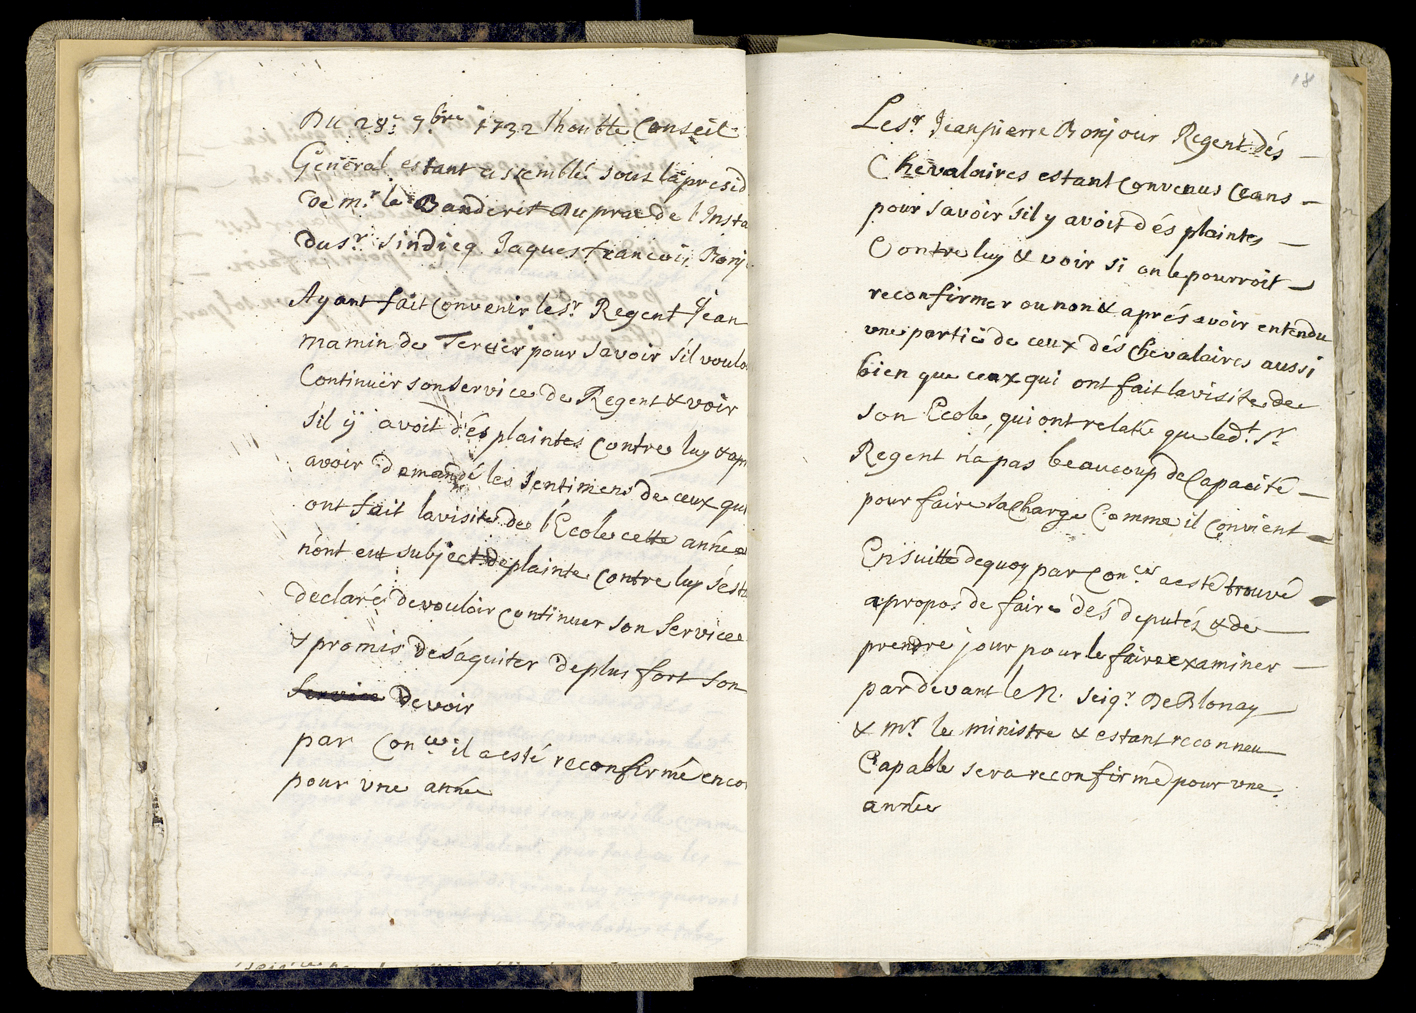 Du 28e 9bre 1732 lhonble Conseil
General estant assemblé sous la presid
de mr le Banderet Duprae de l'Insta
du sr sindicq Jaques francois Bonj
Ayant fait convenir le sr Regent Jean
mamin de Tercier pour savoir s'il voulo
Continuër son service de Regent & voir
s'il ÿ avoit dés plaintes contre luy & apr
avoir demandé les sentimens de ceux qui
ont fait la visite de l'Ecole cette année
n'ont eut subject de plainte contre luy s'est
declaré de vouloir continuer son Service
& promis de s'aquiter de plus fort son
Service devoir
par Conce il a esté reconfirmé enco
pour vne année
18
Le sr Jean pierre Bonjour Regent dés
Chevalaires estant convenus ceans
pour savoir s'il y avoit dés plaintes
Contre luy & voir si on le pourroit
reconfirmer ou non & aprés avoir entendu
vne partie de ceux dés Chevalaires aussi
bien que ceux qui ont fait la visite de
son Ecole, qui ont relaté que led.t sr
Regent n'a pas beaucoup de Capacité
pour faire sa Charge Comme il convient
Ensuitte dequoy par Conce a esté trouvé
apropos de faire dés deputéz & de
prendre jour pour le faire examiner
par devant le N. seigr De Blonay
& mr le ministre & estant reconneu
Capable sera reconfirmé pour vne
année